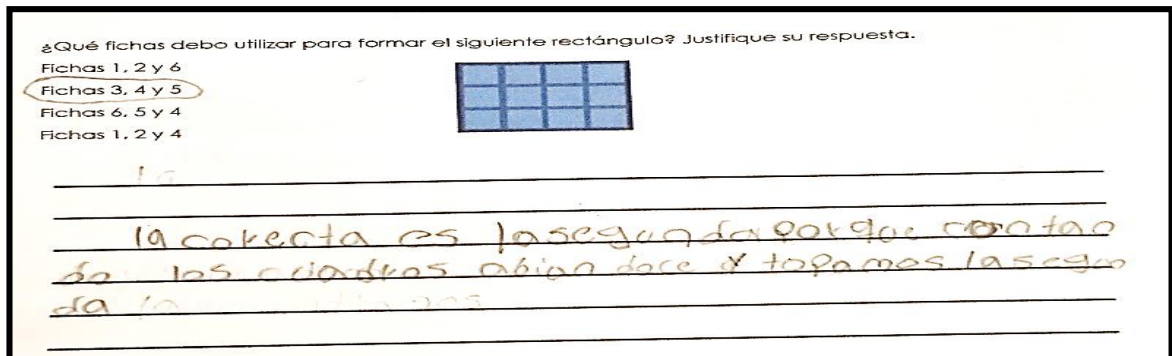 ¿Qué fichas debo utilizar para formar el siguiente rectángulo? Justifique su respuesta.
Fichas 1, 2 y 6
Fichas 3, 4 y 5
Fichas 6, 5 y 4
Fichas 1, 2 y 4
la
la corecta es lasegunda porque contan
do los cuadros abian doce y topamos lasegun
da